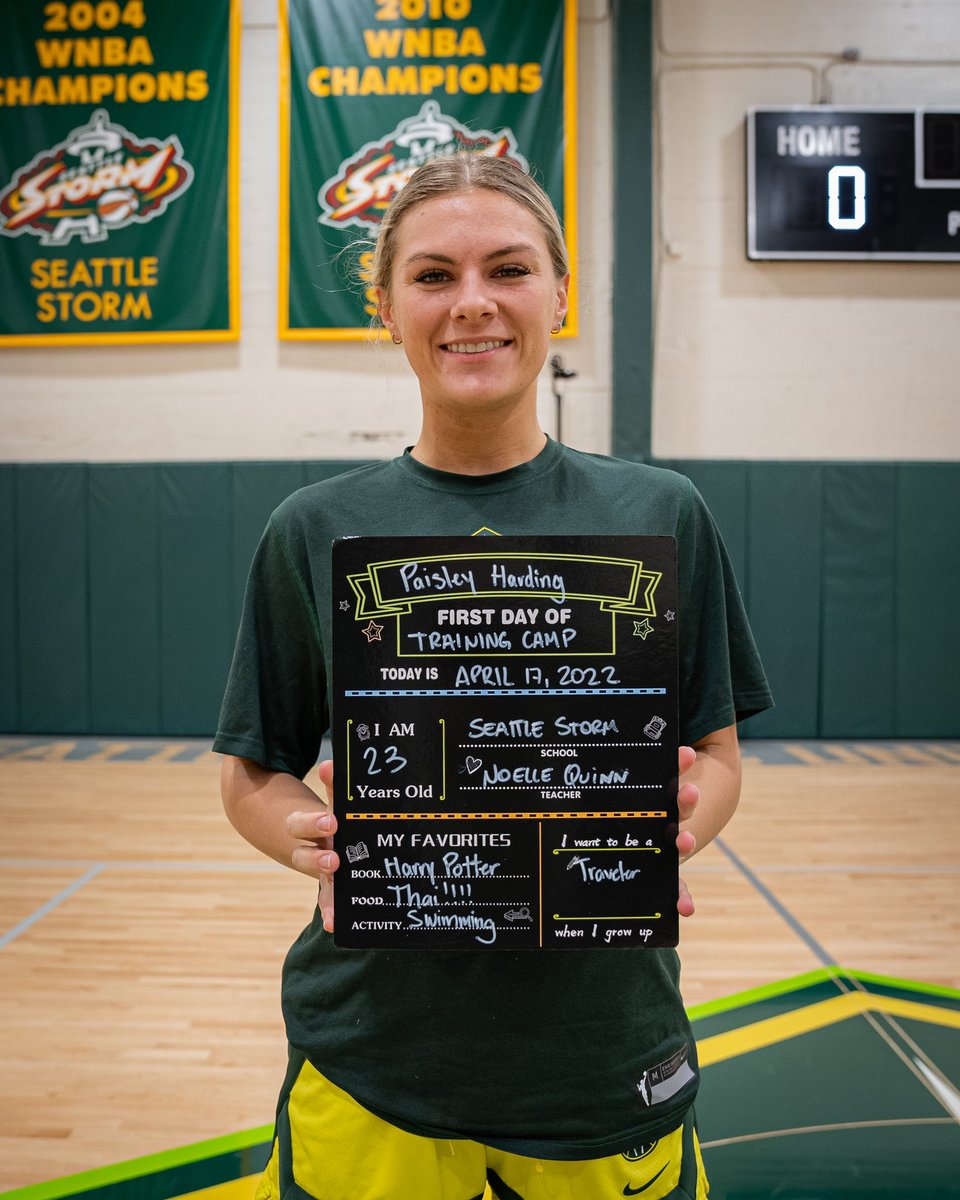 2004
WNBA
CHAMPIONS
STORM
SEATTLE
STORM
2010
WNBA
CHAMPIONS
STORM
HOME
0
P
Paisley Harding
FIRST DAY OF
TRAINING CAMP
TODAY IS APRIL 17, 2022
I AM
23
Years Old
SEATTLE STORM
SCHOOL
NOELLE QUINN
TEACHER
MY FAVORITES
BOOK Harry Potter
FOOD Thai!!!!
ACTIVITY Swimming
I want to be a
Traveler
when I grow up